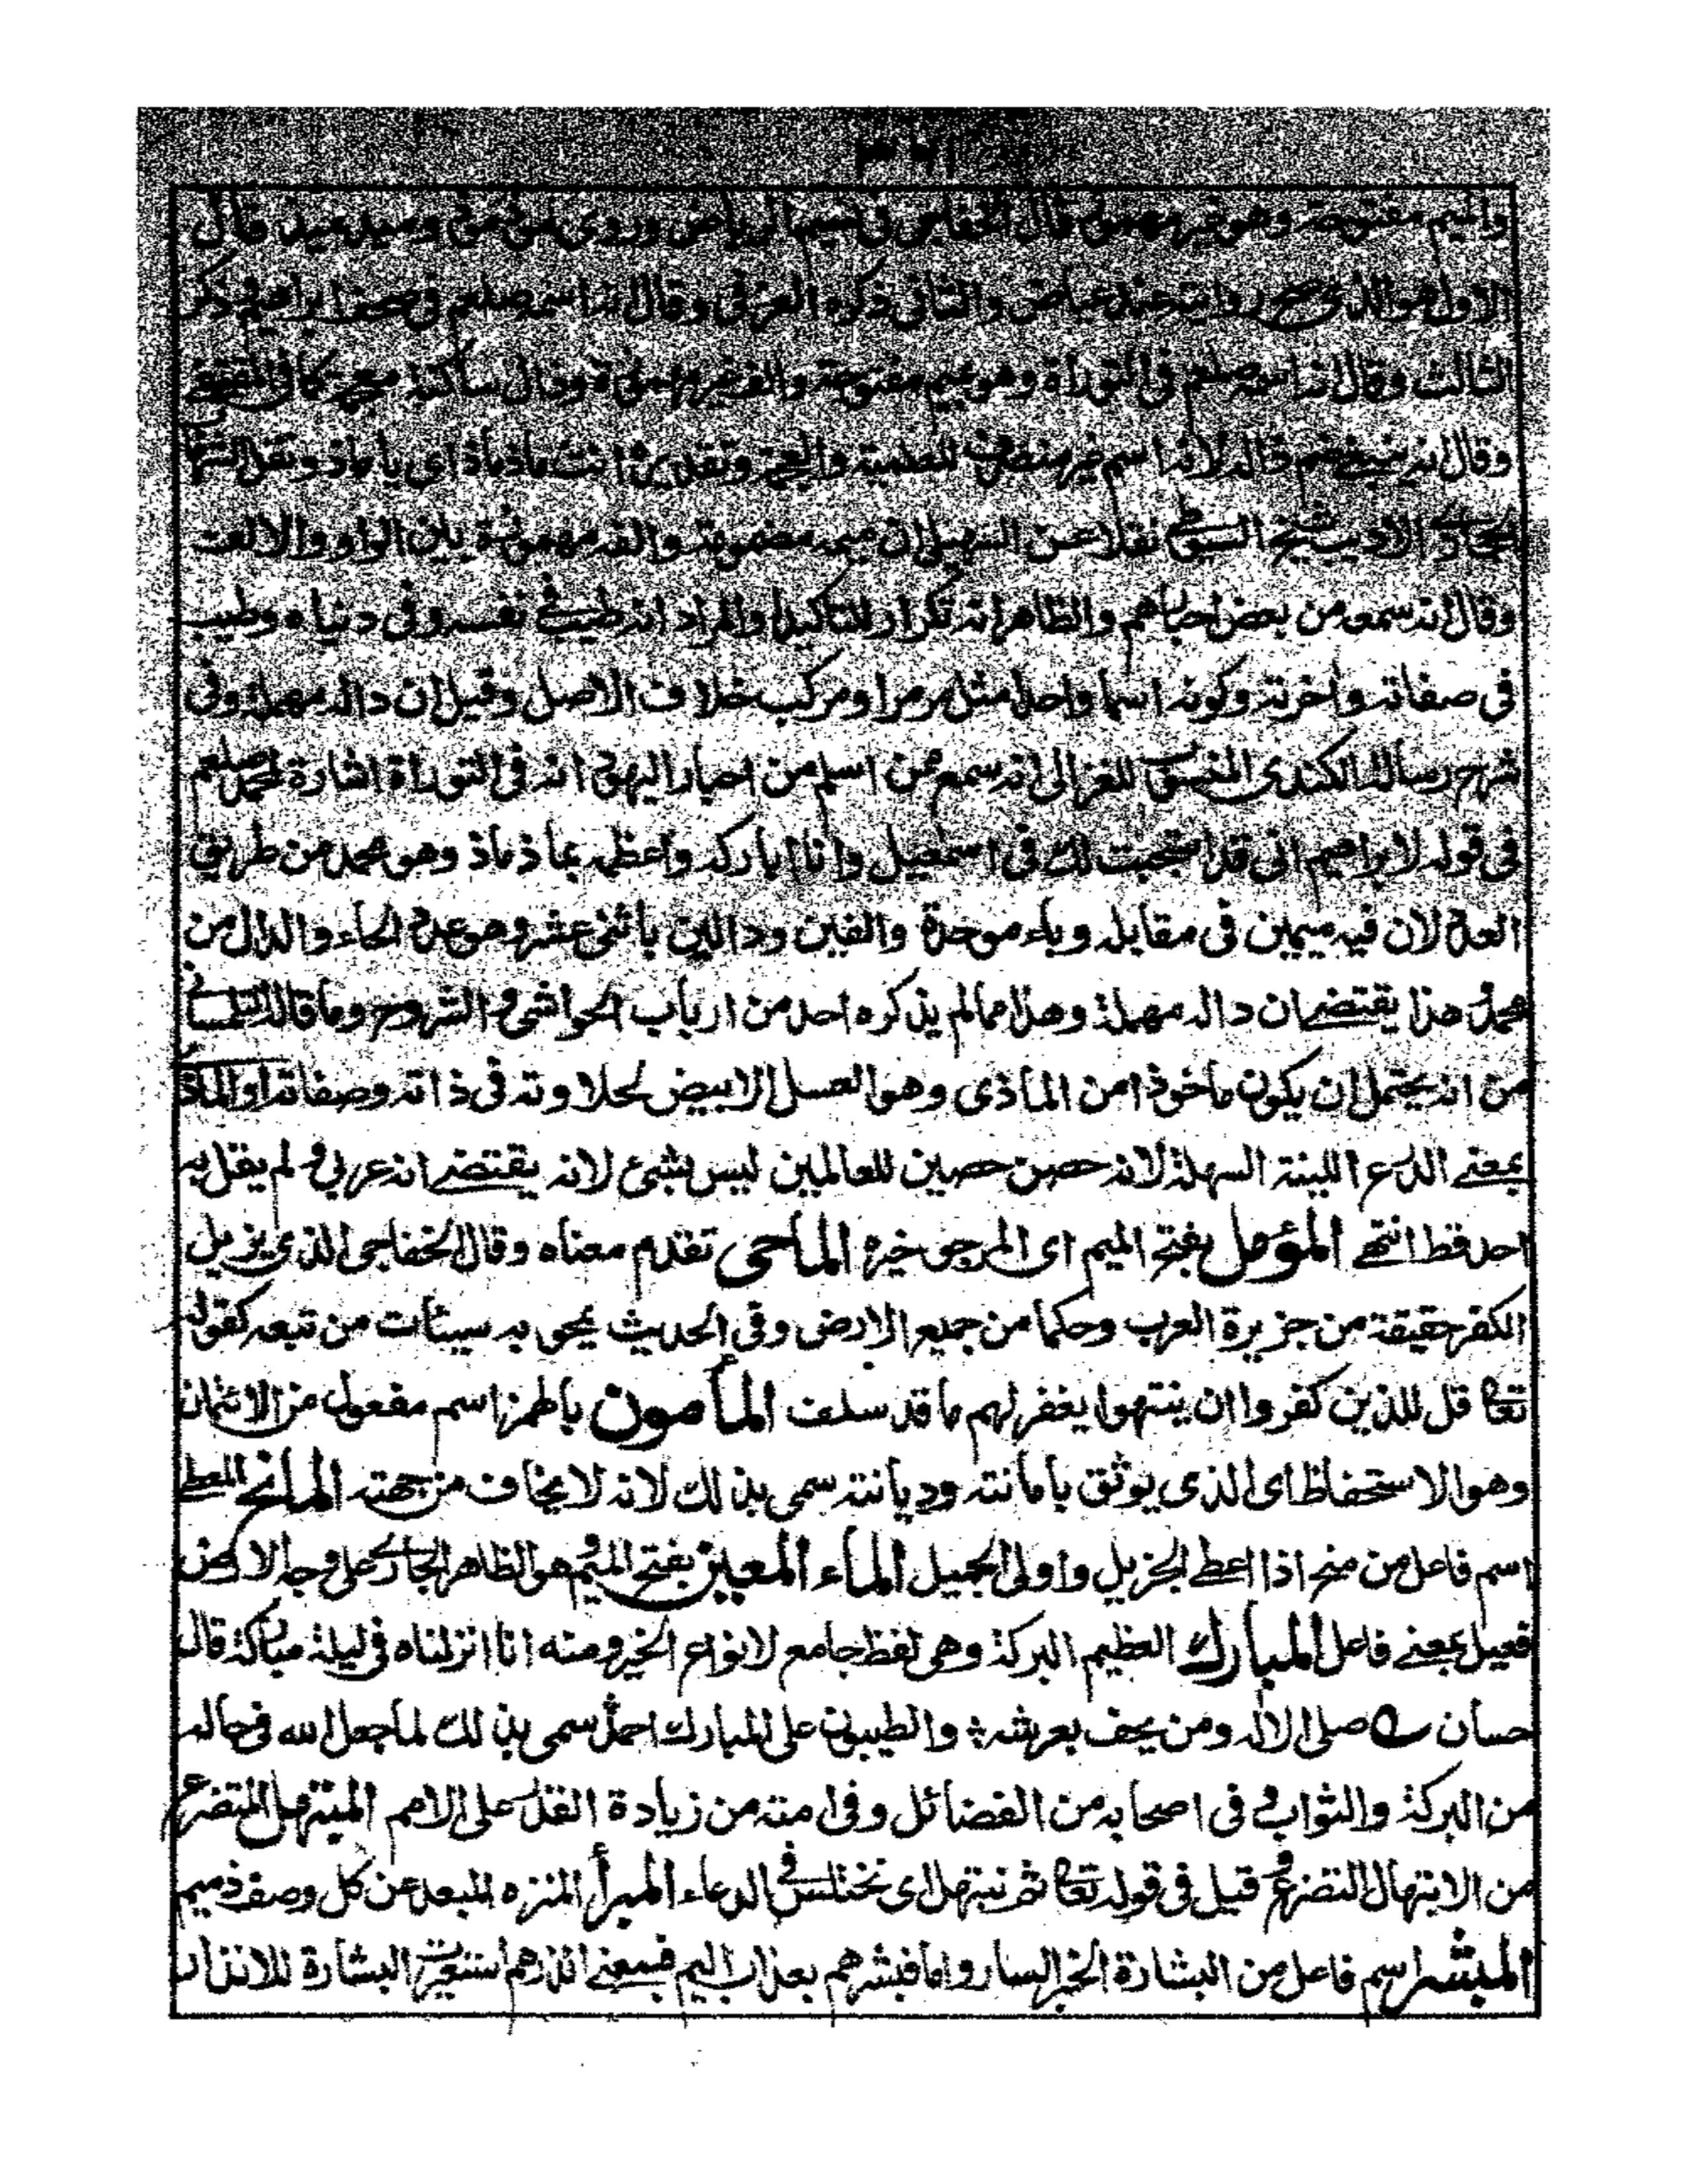 والميم مفتوحة وهو غير مهموز قال الخفاجى فى نسيم الرياض وروى موذ موذ وميذ ميذ قال
الاول هو الذى صح رواية عند عياض والثانى ذكره العزفى وقال انه اسمه صلعم فى صحف ابراهيم ذكر
الثالث وقال انه اسمه صلعم فى التوراة وهو بميم مفتوحة والف غير مهموزة وذال ساكنة معجمة كما فى المقتفى
وقال انه ينبغى ضم ذاله لانه اسم غير منصرف للعلمية والعجمة وتقديره انت ماذ ماذ اى يا ماذ ونقل الشهاب
الحجازى الاديب شيخ السيوطى نقلا عن السهيلى ان ميمه مضمومة والفه مهموزة بين الواو والالف
وقال انه سمعه من بعض احبارهم والظاهر انه تكرار للتاكيد او المراد انه طيب فى نفسه وفى دنياه وطيب
فى صفاته واخرته وكونه اسما واحدا مثل مرمرا ومركب خلاف الاصل وقيل ان داله مهملة وفى
شرح رسالة الكندى للغزالى انه سمع ممن اسلم من احبار اليهود انه فى التوراة اشارة لمحمد صلعم
فى قوله لابراهيم انى قد استجبت لك فى اسمعيل وانا اباركه واعظمه بماذ ماذ وهو محمد من طريق
العدد لان فيه ميمين فى مقابله وباء موحدة والفين ودالين باثنى عشر وهو عدد الحاء والدال من
محمد هذا يقتضى ان داله مهملة وهذا مما لم يذكره احد من ارباب الحواشى والشروح وما قاله التلمسانى
من انه يحتمل ان يكون ماخوذا من الماذى وهو العسل الابيض لحلاوته فى ذاته وصفاته او الماذى
بمعنى الدرع اللينة السهلة لانه حصن حصين للعالمين ليس بشئ لانه يقتضى انه عربى ولم يقل به
احد قط انتهى المؤمل بفتح الميم اى المرجو خيره الماحى تقدم معناه وقال الخفاجى الذى يزيل
الكفر حقيقة من جزيرة العرب وحكما من جميع الارض وفى الحديث يمحو به سيئات من تبعه كقوله
تعا قل للذين كفروا ان ينتهوا يغفر لهم ما قد سلف المأمون بالهمز اسم مفعول من الائتمان
وهو الاستحفاظ اى الذى يوثق بامانته وديانته سمى بذلك لانه لا يخاف من جهته المانح المعطى
اسم فاعل من منح اذا اعطى الجزيل واولى الجميل الماء المعين بفتح الميم وهو الظاهر الجارى على وجه الارض
فعيل بمعنى فاعل المبارك العظيم البركة وهى لفظ جامع لانواع الخير ومنه انا انزلناه فى ليلة مباركة قال
حسان صلى الاله ومن يحف بعرشه والطيبون على المبارك احمد سمى بذلك لما جعل الله فى حاله
من البركة والثواب وفى اصحابه من الفضائل وفى امته من زيادة القدر على الامم المبتهل المتضرع
من الابتهال التضرع وقيل فى قوله تعا ثم نبتهل اى نخلص فى الدعاء المبرأ المنزه المبعد عن كل وصف ذميم
المبشر اسم فاعل من البشارة الخبر السار واما فبشرهم بعذاب اليم فبمعنى انذرهم استعيرت البشارة للانذار